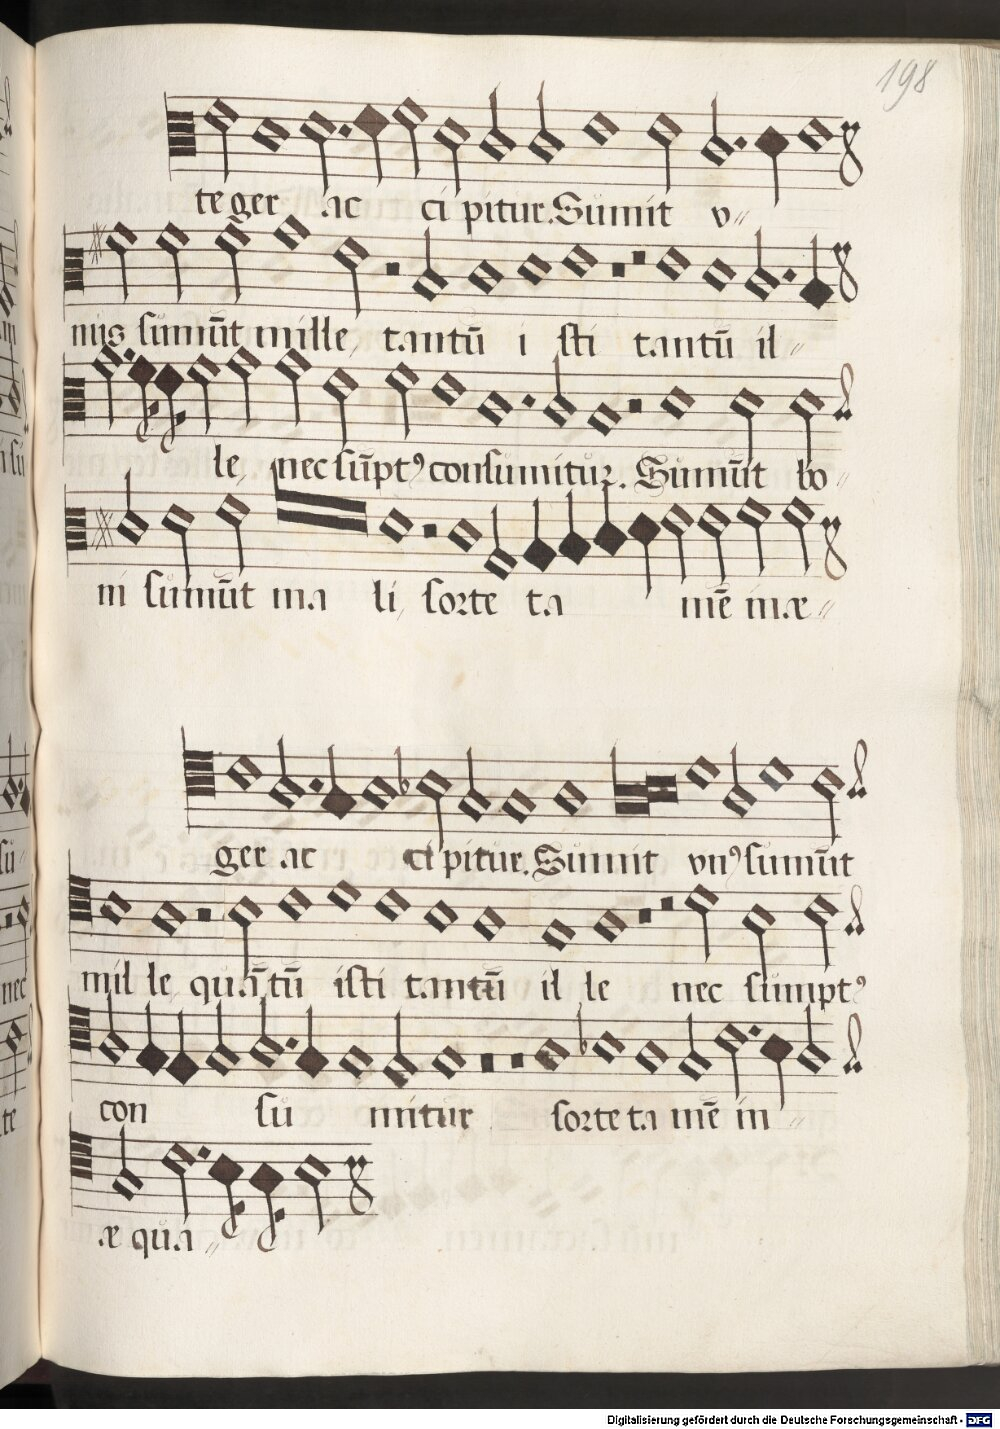 198
te ger ac ci pitur. Sumit v〃
nus sumūt mille, tantū i sti tantū il〃
le, nec sūptꝰ consumitur. Sumūt bo〃
ni sumūt ma li, sorte ta mē inæ〃
ger ac ci pitur. Sumit vnꝰ sumūt
mil le, quātū isti tantū il le nec sumptꝰ
con su mitur sorte ta mē in〃
æ qua〃
Digitalisierung gefördert durch die Deutsche Forschungsgemeinschaft - DFG